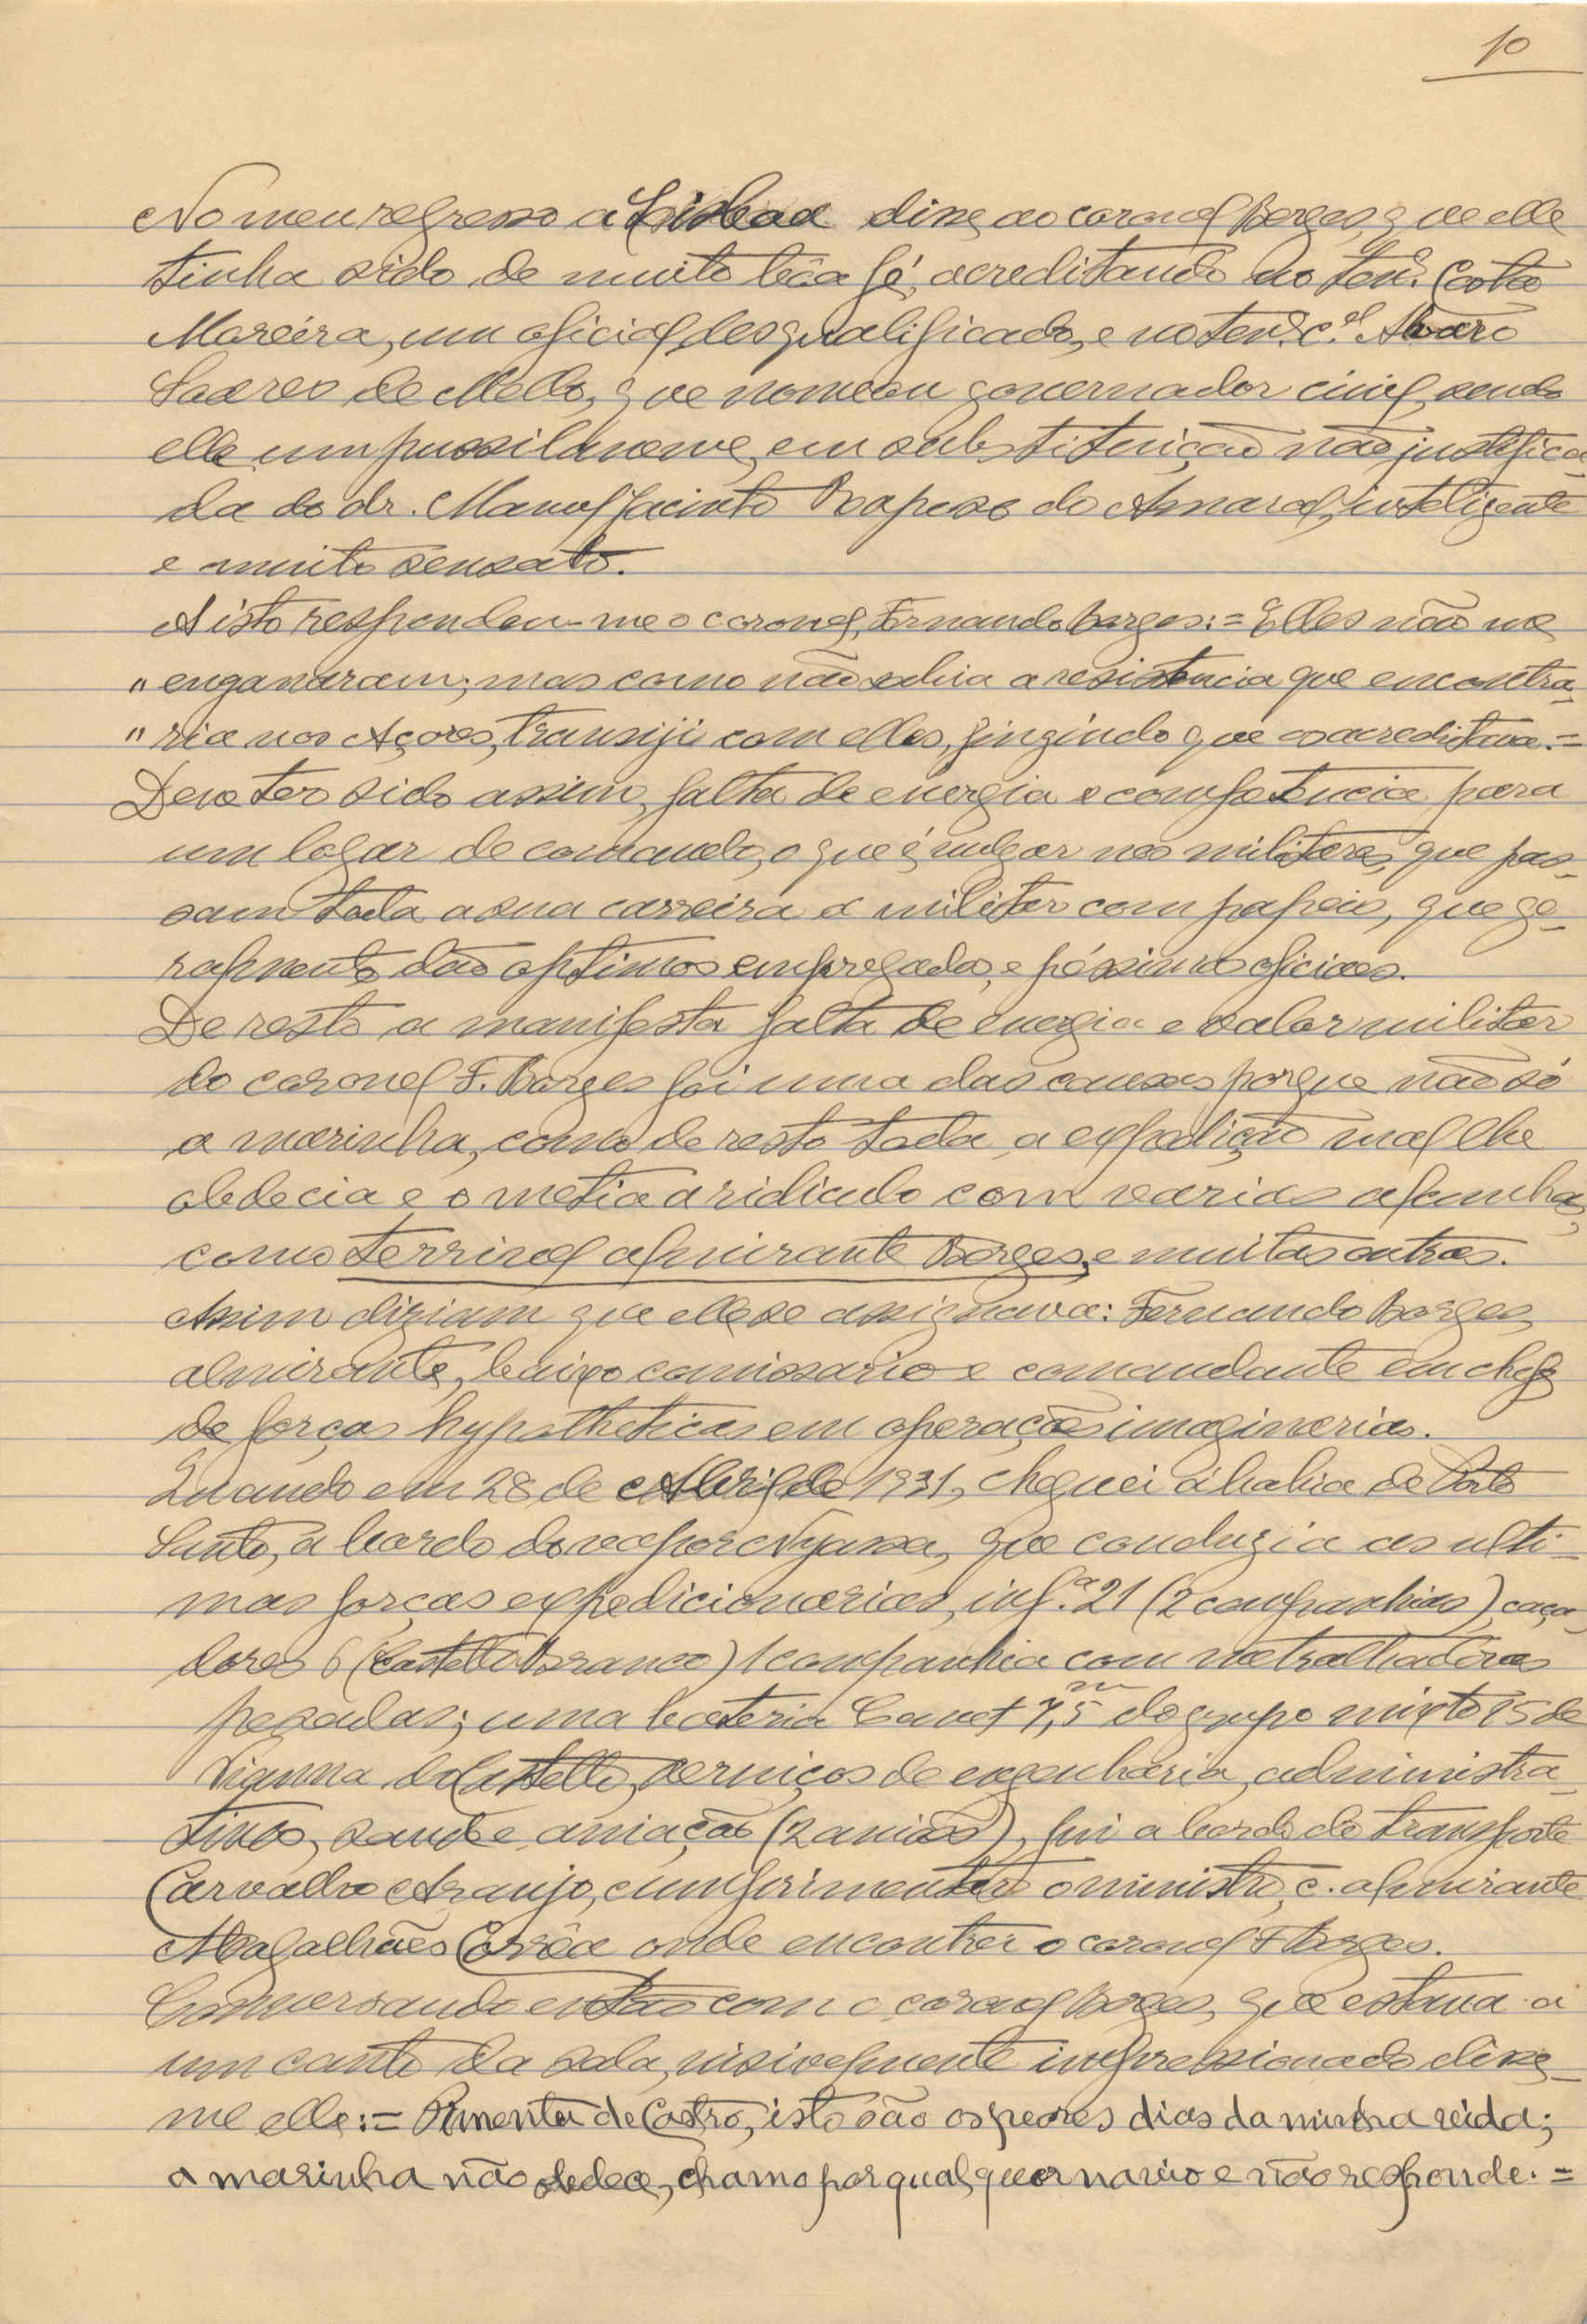 10
No meu regresso a Lisboa disse ao coronel Borges, que elle
tinha sido de muito bôa fé, acreditando no ten.e Costa
Moreira, um oficial desqualificado, e no ten.e c.el Alvaro
Soares de Mello, que nomeou governador civil, sendo
elle um pusilanime, em substituição não justifica-
da do dr. Manoel Jacinto Raposo do Amaral, inteligente
e muito sensato.
A isto respondeu-me o coronel Fernando Borges: = Elles não me
" enganaram; mas como não sabia a resistencia que encontra-
" ria nos Açores, transiji com elles, fingindo que os acreditava. =
Deve ter sido assim, falta de energia e competencia para
um logar de comando, o que é vulgar nos militares, que pas-
sam toda a sua carreira a militar com papeis, que ge-
ralmente dão optimos empregados, e péssimos oficiaes.
De resto a manifesta falta de energia e valor militar
do coronel F. Borges foi uma das causas porque não só
a marinha, como de resto toda a expedição mal lhe
obdecia e o metia a ridiculo com varias alcunhas,
como terrivel almirante Borges, e muitas outras.
Assim diziam que elle se assignava: Fernando Borges,
almirante, baixo comissario e comandante em chefe
de forças hypotheticas em operações imaginarias.
Quando em 28 de Abril de 1931, cheguei á bahia de Porto
Santo, a bordo do vapor Nyassa, que conduzia as ulti-
mas forças expedicionarias, inf.a 21 (2 companhias), caça-
dores 6 (Castello Branco) 1 companhia com metralhadoras
pesadas; uma bateria Canet 7,5 do grupo mixto 15 de
Vianna do Castello, serviços de engenharia, administra-
tivos, saude e aviação (2 aviões), fui a bordo do transporte
Carvalho Araujo, cumprimentar o ministro, c. almirante
Magalhães Corrêa onde encontrei o coronel F. Borges.
Conversando então com o coronel Borges, que estava a
um canto da sala, visivelmente impressionado disse-
me elle: = Pimenta de Castro, isto são os peores dias da minha vida;
a marinha não obdece, chamo por qualquer navio e não responde. =